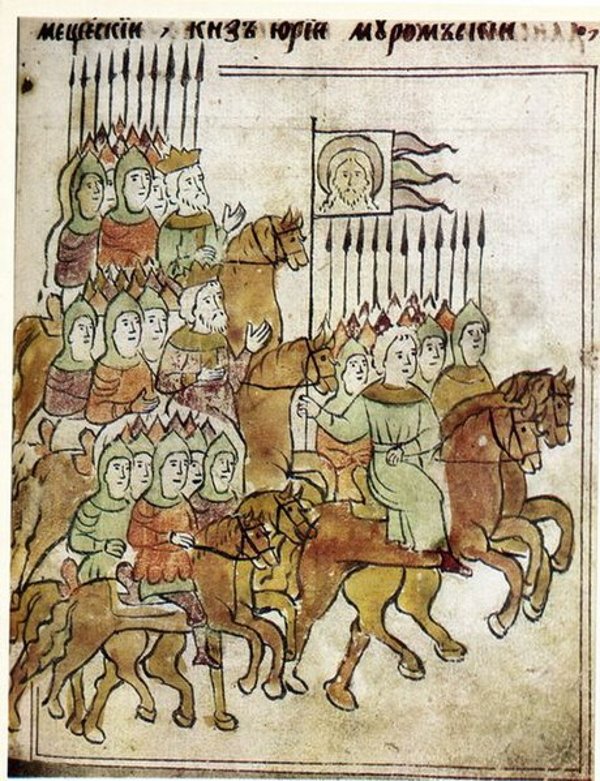 мещескїи , кнзъ юрїи муромъскїи